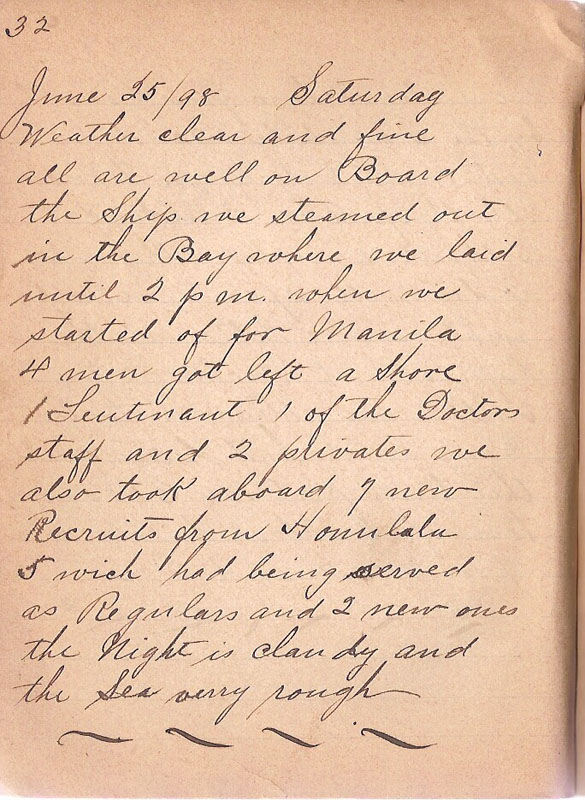 32
June 25/98 Saturday
Weather clear and fine
all are well on Board
the Ship we steamed out
in the Bay where we laid
until 2 p m. when we
started of for Manila
4 men got left a Shore
1 Leutinant 1 of the Doctors
staff and 2 privates we
also took aboard 7 new
Recruits from Honulalu
5 wich had being served
as Regulars and 2 new ones
the Night is cloudy and
the Sea verry rough